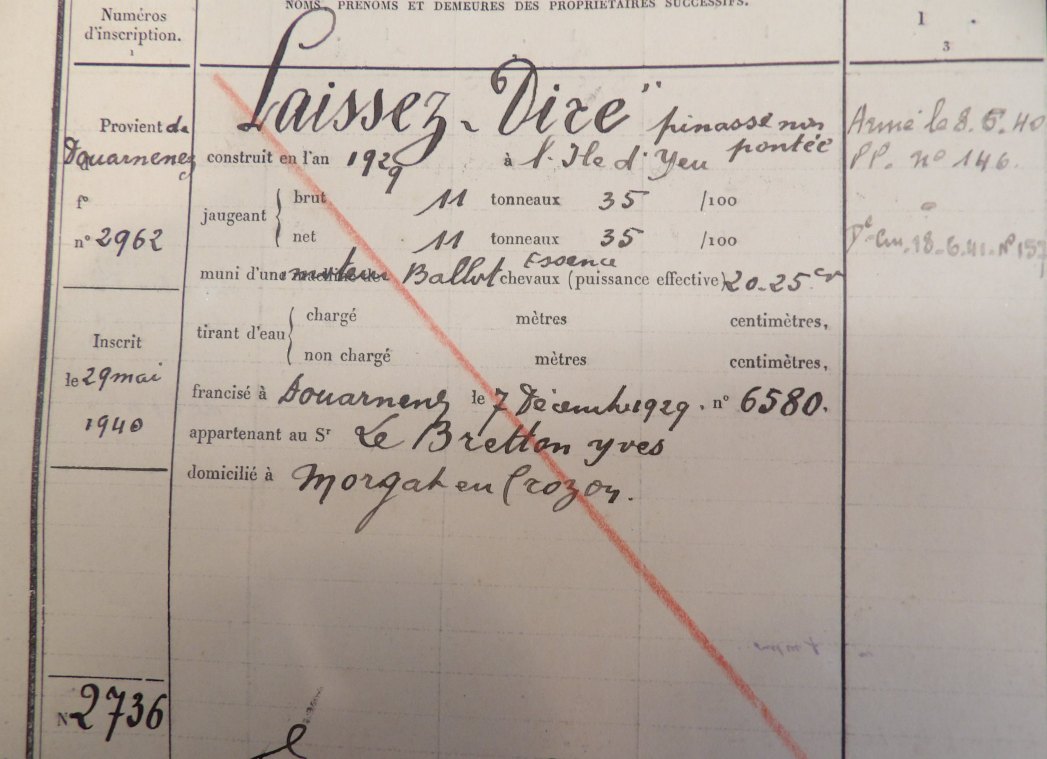 NOMS, PRÉNOMS ET DEMEURES DES PROPRIÉTAIRES SUCCESSIFS.
Numéros
d'inscription.
1
1
3
Laissez-Dire" pinasse non
pontée
Provient de
Douarnenez
f°
n° 2962
construit en l'an 1929 à l'Ile d'Yeu
jaugeant { brut 11 tonneaux 35 /100
net 11 tonneaux 35 /100
muni d'une machine de moteur Ballot Essence chevaux (puissance effective) 20-25 cv
tirant d'eau { chargé mètres centimètres,
non chargé mètres centimètres,
Inscrit
le 29 mai
1940
francisé à Douarnenez le 7 Décembre 1929. n° 6580.
appartenant au Sr Le Bretton Yves
domicilié à Morgat en Crozon.
Armé le 8.6.40
PP. n° 146.
18.6.41. N° 157
N° 2736